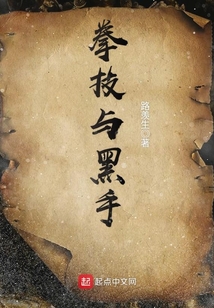 拳技与黑手
路羡生 著
起点中文网